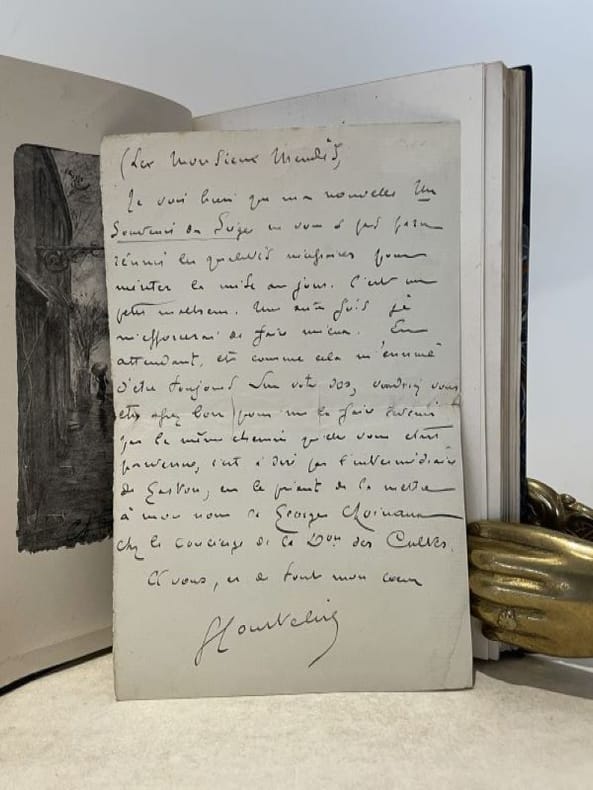 Cher Monsieur Mendès,
Je vois bien que ma nouvelle Un
Souvenir du Siège ne vous a pas paru
réunir les qualités nécessaires pour
mériter la mise au jour. C'est un
petit malheur. Une autre fois je
m'efforcerai de faire mieux. En
attendant, et comme cela m'ennuie
d'être toujours sur votre dos, voudriez vous
être assez bon pour me la faire tenir
par le même chemin qu'elle vous était
parvenue, c'est à dire par l'intermédiaire
de Gaston, en le priant de la mettre
à mon nom de Georges Moinaux
chez le concierge de la Don des Cultes.
A vous, et de tout mon cœur
GCourteline